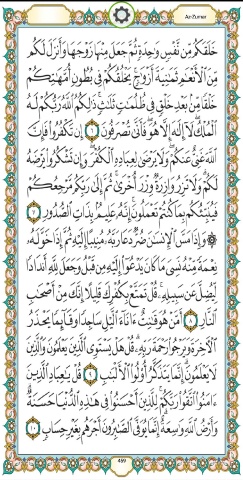 Az-Zumar
خَلَقَكُم مِّن نَّفْسٍ وَٰحِدَةٍ ثُمَّ جَعَلَ مِنْهَا زَوْجَهَا وَأَنزَلَ لَكُم
مِّنَ ٱلْأَنْعَٰمِ ثَمَٰنِيَةَ أَزْوَٰجٍ يَخْلُقُكُمْ فِى بُطُونِ أُمَّهَٰتِكُمْ
خَلْقًا مِّنۢ بَعْدِ خَلْقٍ فِى ظُلُمَٰتٍ ثَلَٰثٍ ذَٰلِكُمُ ٱللَّهُ رَبُّكُمْ لَهُ
ٱلْمُلْكُ لَآ إِلَٰهَ إِلَّا هُوَ فَأَنَّىٰ تُصْرَفُونَ ٦ إِن تَكْفُرُوا۟ فَإِنَّ
ٱللَّهَ غَنِىٌّ عَنكُمْ وَلَا يَرْضَىٰ لِعِبَادِهِ ٱلْكُفْرَ وَإِن تَشْكُرُوا۟ يَرْضَهُ
لَكُمْ وَلَا تَزِرُ وَازِرَةٌ وِزْرَ أُخْرَىٰ ثُمَّ إِلَىٰ رَبِّكُم مَّرْجِعُكُمْ
فَيُنَبِّئُكُم بِمَا كُنتُمْ تَعْمَلُونَ إِنَّهُۥ عَلِيمٌۢ بِذَاتِ ٱلصُّدُورِ ٧
۞ وَإِذَا مَسَّ ٱلْإِنسَٰنَ ضُرٌّ دَعَا رَبَّهُۥ مُنِيبًا إِلَيْهِ ثُمَّ إِذَا خَوَّلَهُۥ
نِعْمَةً مِّنْهُ نَسِىَ مَا كَانَ يَدْعُوٓا۟ إِلَيْهِ مِن قَبْلُ وَجَعَلَ لِلَّهِ أَندَادًا
لِّيُضِلَّ عَن سَبِيلِهِۦ قُلْ تَمَتَّعْ بِكُفْرِكَ قَلِيلًا إِنَّكَ مِنْ أَصْحَٰبِ
ٱلنَّارِ ٨ أَمَّنْ هُوَ قَٰنِتٌ ءَانَآءَ ٱلَّيْلِ سَاجِدًا وَقَآئِمًا يَحْذَرُ
ٱلْءَاخِرَةَ وَيَرْجُوا۟ رَحْمَةَ رَبِّهِۦ قُلْ هَلْ يَسْتَوِى ٱلَّذِينَ يَعْلَمُونَ وَٱلَّذِينَ
لَا يَعْلَمُونَ إِنَّمَا يَتَذَكَّرُ أُو۟لُوا۟ ٱلْأَلْبَٰبِ ٩ قُلْ يَٰعِبَادِ ٱلَّذِينَ
ءَامَنُوا۟ ٱتَّقُوا۟ رَبَّكُمْ لِلَّذِينَ أَحْسَنُوا۟ فِى هَٰذِهِ ٱلدُّنْيَا حَسَنَةٌ
وَأَرْضُ ٱللَّهِ وَٰسِعَةٌ إِنَّمَا يُوَفَّى ٱلصَّٰبِرُونَ أَجْرَهُم بِغَيْرِ حِسَابٍ ١٠
459